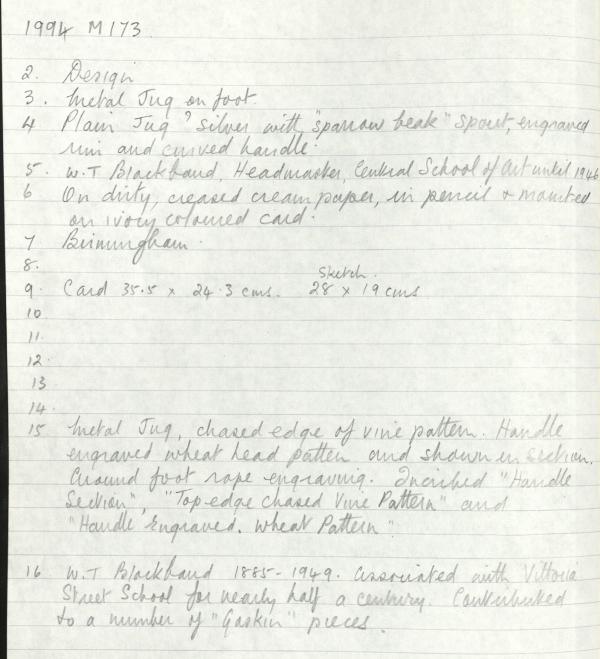 1994 M173.
2. Design
3. Metal Jug on foot.
4 Plain Jug ? Silver with "sparrow beak" spout, engraved
rim and curved handle.
5. W.T Blackband, Headmaster, Central School of Art until 1946
6 On dirty, creased cream paper, in pencil & mounted
on ivory coloured card.
7 Birmingham.
8.
Sketch.
9. Card 35.5 x 24.3 cms. 28 x 19 cms
10
11.
12.
13
14.
15 Metal Jug, chased edge of vine pattern. Handle
engraved wheat head patten and shown in section.
Around foot rope engraving. Incribed "Handle
Section", "Top edge chased Vine Pattern" and
"Handle Engraved. Wheat Pattern"
16 W.T Blackband 1885-1949. Associated with Vittoria
Street School for nearly half a century. Contributed
to a number of "Gaskin" pieces.